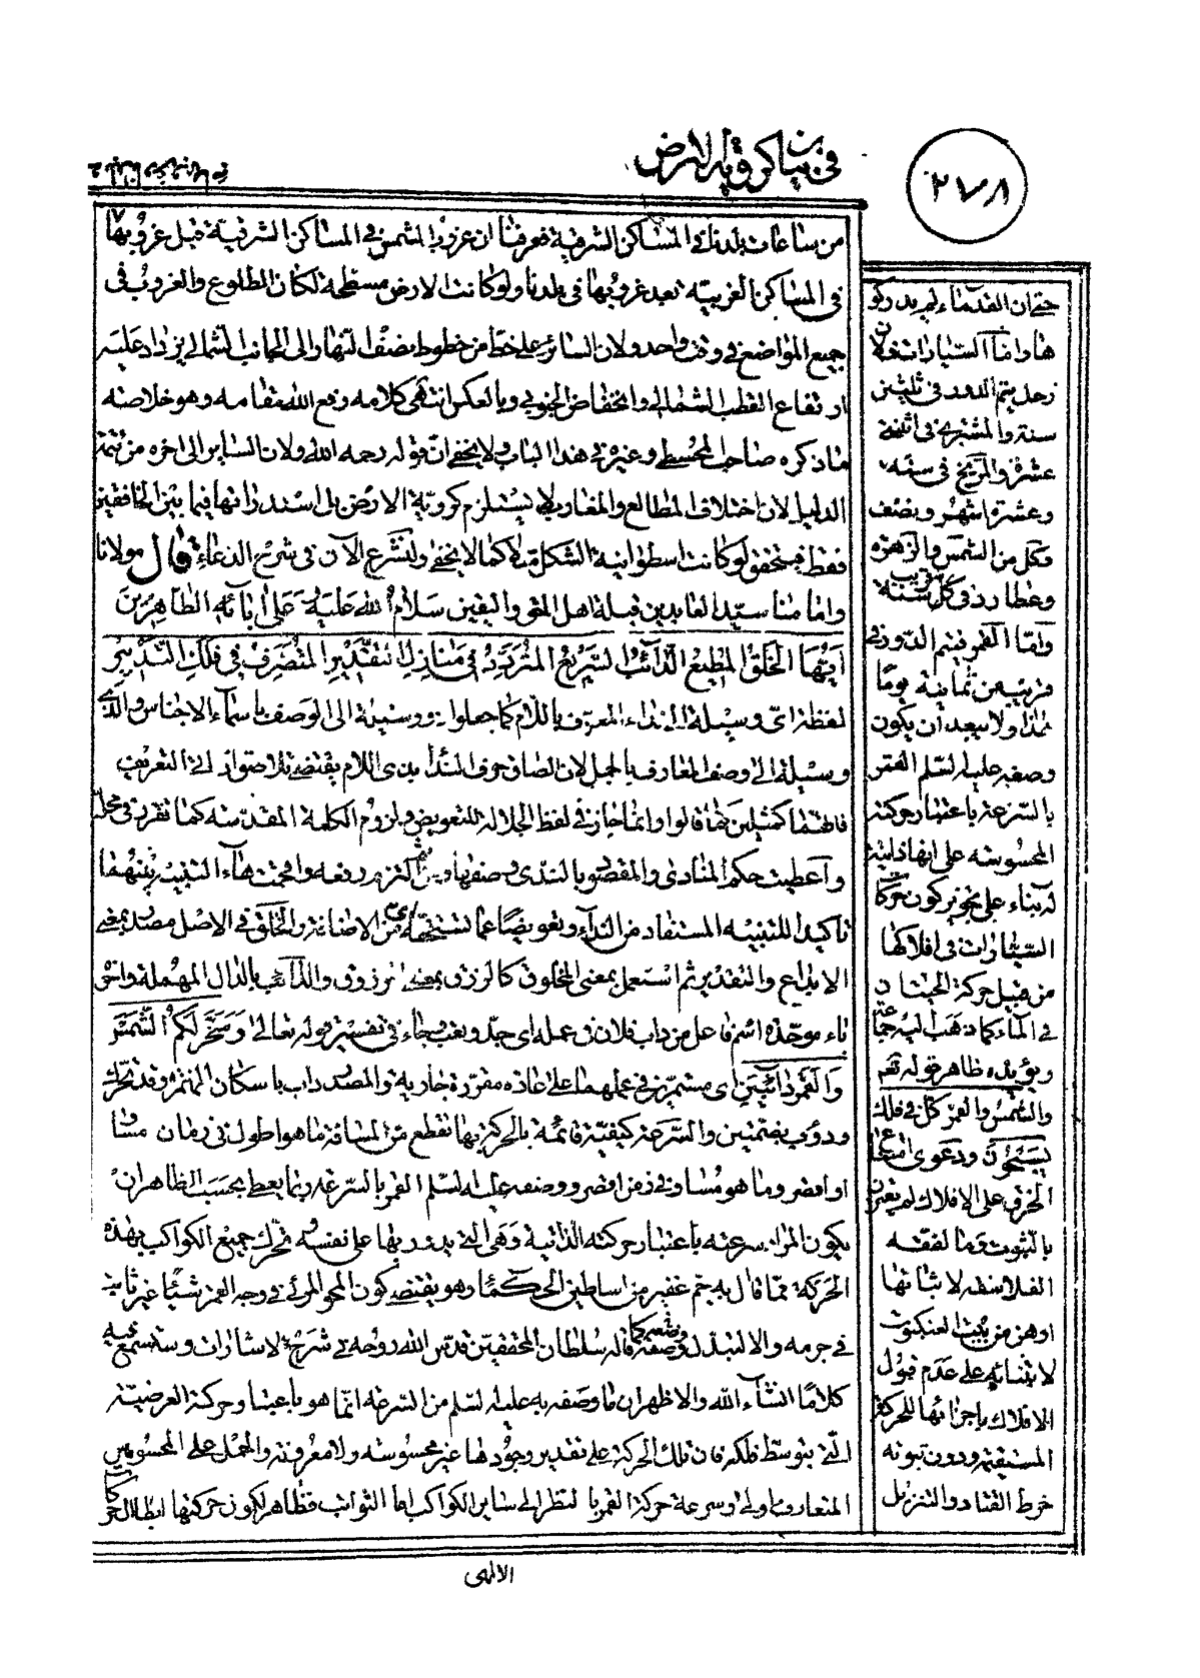 في بيان كروية الارض
٢٧٨
من ساعات بلدنا في المساكن الشرقية فعرفنا ان غروب الشمس في المساكن الشرقية قبل غروبها
في المساكن الغربية بعد غروبها في بلدنا ولو كانت الارض مسطحة لكان الطلوع والغروب في
جميع المواضع في وقت واحد ولان السائر على خط من خطوط نصف النهار الى الجانب الشمالي يزداد عليه
ارتفاع القطب الشمالي وانخفاض الجنوبي وبالعكس انتهى كلامه رفع الله مقامه وهو خلاصة
ما ذكره صاحب المجسطي وغيره في هذا الباب ولا يخفى ان قوله رحمه الله ولان السائر الى اخره من تتمة
الدليل لان اختلاف المطالع والمغارب لا يستلزم كروية الارض بل استدارتها فيما بين الخافقين
فقط فيتحقق لو كانت اسطوانية الشكل مثلا كما لا يخفى ولنشرع الآن في شرح الدعاء قال مولانا
وامامنا سيد العابدين قبلة اهل الحق واليقين سلام الله عليه وعلى آبائه الطاهرين
ايها الخلق المطيع الدائب السريع المتردد في منازل التقدير المتصرف في فلك التدبير
لفظة اي وسيلة الى نداء المعرف باللام كما جعلوا ذو وسيلة الى الوصف باسماء الاجناس والذي
وسيلة الى وصف المعارف بالجمل لان الصاق حرف النداء بذي اللام يقتضي تلاصق اداتي التعريف
فانهما كمثلين كما قالوا وانما جاز في لفظ الجلالة للتعويض ولزوم الكلمة المقدسة كما تقرر في محله
واعطيت حكم المنادى والمقصود بالنداء وصفها ومن ثم التزم رفعه واقحمت هاء التنبيه بينهما
تأكيدا للتنبيه المستفاد من النداء وتعويضا عما تستحقه اي من الاضافة والخلق في الاصل مصدر بمعنى
الابداع والتقدير ثم استعمل بمعنى المخلوق كالرزق بمعنى المرزوق والدائب بالدال المهملة واخره
باء موحدة اسم فاعل من داب فلان في عمله اي جد وتعب وجاء في تفسير قوله تعالى وسخر لكم الشمس
والقمر دائبين اي مستمرين في عملهما على عادة مقررة جارية والمصدر داب باسكان الهمزة وقد تحرك
ودؤب بضمتين والسرعة كيفية قائمة بالحركة بها تقطع من المسافة ما هو اطول في زمان مساو
او اقصر وما هو مساو في زمن اقصر ووصفه عليه السلم القمر بالسرعة ربما يعطي بحسب الظاهر ان
يكون المراد سرعته باعتبار حركته الذاتية وهي التي يدور بها على نفسه وتحرك جميع الكواكب بهذه
الحركة مما قال به جم غفير من اساطين الحكماء وهو يقتضي كون المحو المرئي في وجه القمر شيئا غير ثابت
في جرمه والا لتبدل وضعه كما قاله سلطان المحققين قدس الله روحه في شرح الاشارات وستسمع فيه
كلاما انشاء الله والاظهر ان ما وصفه به عليه السلم من السرعة انما هو باعتبار حركته العرضية
التي بتوسط فلكه فان تلك الحركة على تقدير وجودها غير محسوسة ولا معروفة والحمل على المحسوس
المتعارف اولى وسرعة حركة القمر بالنظر الى سائر الكواكب اما الثوابت فظاهر لكون حركتها ابطأ الحركات
الالهي
حتى ان القدماء لم يدركو
ها واما السيارات فلان
زحل يتم الدور في ثلثين
سنة والمشتري في اثنتى
عشرة والمريخ في سنة
وعشرة اشهر ونصف
وكل من الشمس والزهرة
وعطارد في قريب سنة
واما القمر فيتم الدور في
قريب من ثمانية يوما
هذا ولا يبعد ان يكون
وصفه عليه السلم القمر
بالسرعة باعتبار حركته
المحسوسة على انها ذاتية
له بناء على تجويز كون حركات
السيارات في افلاكها
من قبيل حركة الحيتان
في الماء كما ذهب اليه جماعة
ويؤيده ظاهر قوله تعالى
والشمس والقمر كل في فلك
يسبحون ودعوى امتناع
الخرق على الافلاك لم تقترن
بالثبوت وما لفقته
الفلاسفة لاثباتها
اوهن من بيت العنكبوت
لابتنائه على عدم قبول
الافلاك باجزائها للحركة
المستقيمة ودون ثبوته
خرط القتاد والتنزيل